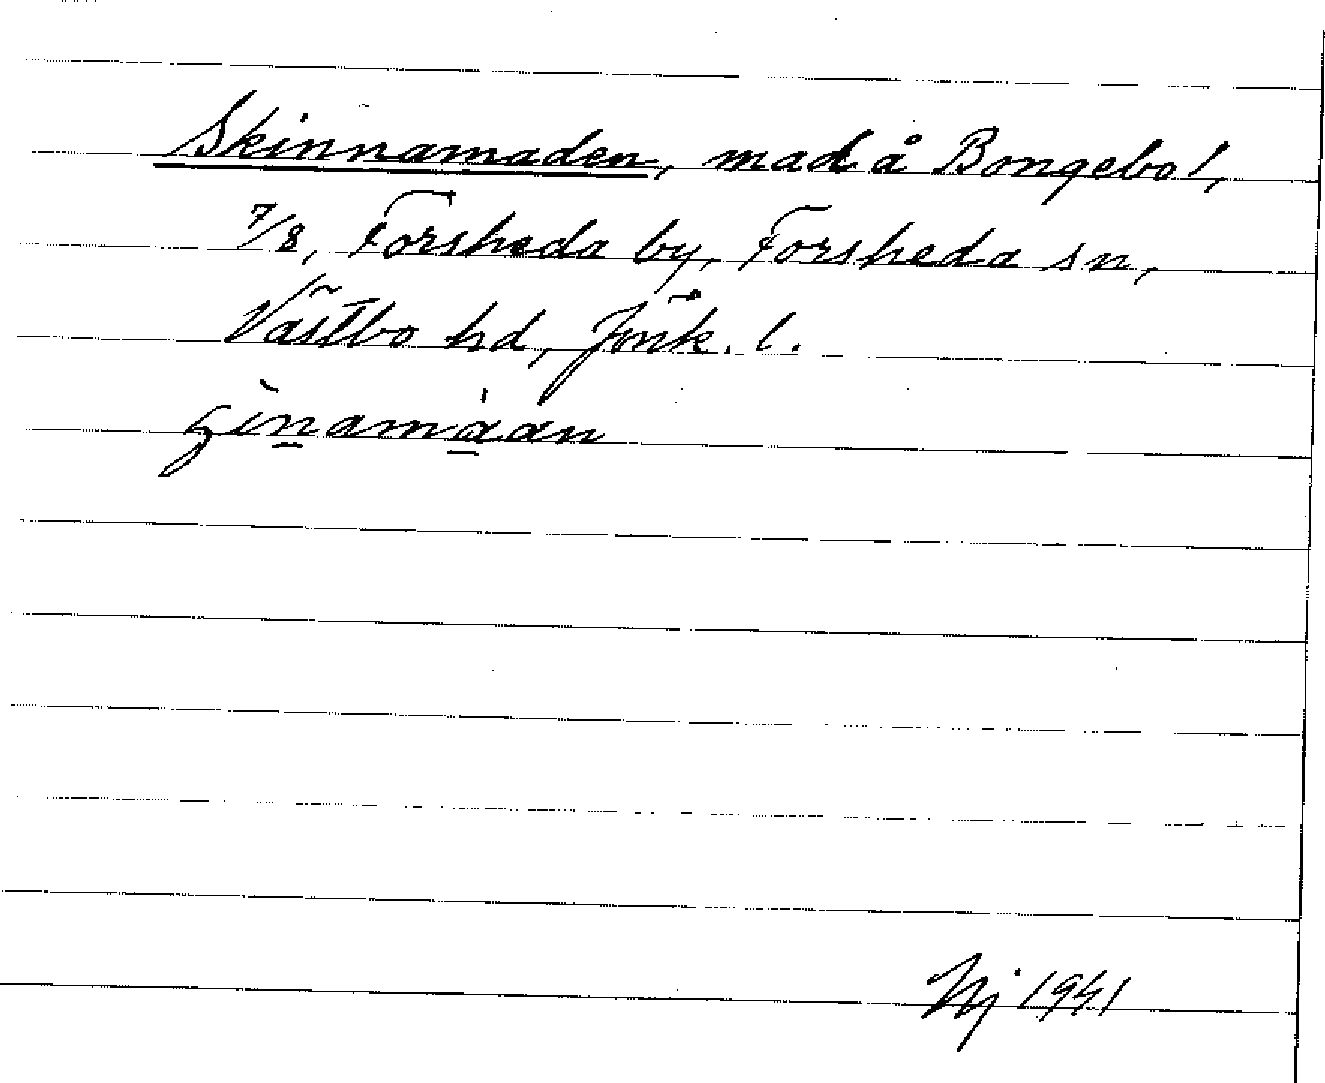 Skinnamaden, mad å Bongebo 1,
7/8, Forsheda by, Forsheda sn,
Västbo hd, Jönk. l.
1941